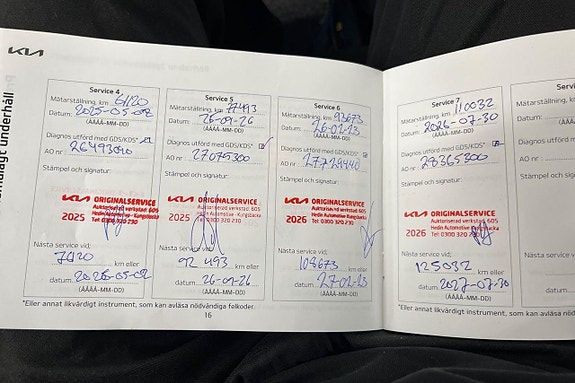 KIA
Service 4
Mätarställning, km 61120
Datum: 2025-05-02
(ÅÅÅÅ-MM-DD)
Diagnos utförd med GDS/KDS*
AO nr
Stämpel och signatur:
KIA ORIGINALSERVICE
Auktoriserad verkstad 605
2025 Hedin Automotive Kungsbacka
Tel 0300 320 230
Nästa service vid;
km eller
datum 2026-05-02
(ÅÅÅÅ-MM-DD)
Service 5
Mätarställning, km 77493
Datum:
(ÅÅÅÅ-MM-DD)
Diagnos utförd med GDS/KDS*
AO nr 27075300
Stämpel och signatur:
KIA ORIGINALSERVICE
Auktoriserad verkstad 605
2025 Hedin Automotive Kungsbacka
Tel 0300 320 230
Nästa service vid;
92 493 km eller
datum
(ÅÅÅÅ-MM-DD)
Service 6
Mätarställning, km 93673
Datum: 26-02-13
(ÅÅÅÅ-MM-DD)
Diagnos utförd med GDS/KDS*
AO nr 27729440
Stämpel och signatur:
KIA ORIGINALSERVICE
Auktoriserad verkstad 605
2026 Hedin Automotive Kungsbacka
Tel 0300 320 230
Nästa service vid;
108673 km eller
datum 27-02-13
(ÅÅÅÅ-MM-DD)
*Eller annat likvärdigt instrument, som kan avläsa nödvändiga felkoder.
16
Service 7
Mätarställning, km 110032
Datum: 2026-07-30
(ÅÅÅÅ-MM-DD)
Diagnos utförd med GDS/KDS*
AO nr 28365300
Stämpel och signatur:
KIA ORIGINALSERVICE
Auktoriserad verkstad 605
2026 Hedin Automotive Kungsbacka
Tel 0300 320 230
Nästa service vid;
125032 km eller
datum 2027-07-30
(ÅÅÅÅ-MM-DD)
Mätarställnin
Datum:
Diagnos utf
AO nr
Stämpel o
Nästa ser
datum
*Eller annat likvärdigt instrument, som kan avläsa nöd